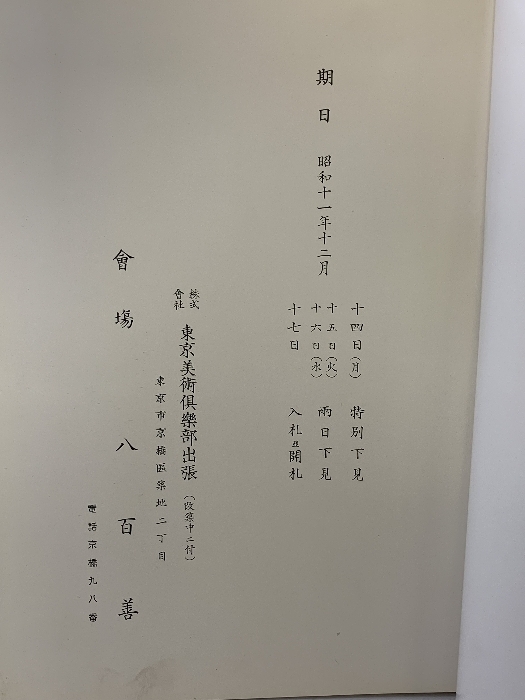 期日 昭和十一年十二月
十四日(月) 特別下見
十五日(火)
十六日(水) 兩日下見
十七日 入札並開札
株式會社 東京美術俱樂部出張(改築中ニ付)
東京市京橋區築地二丁目
會場 八百善
電話京橋九八番